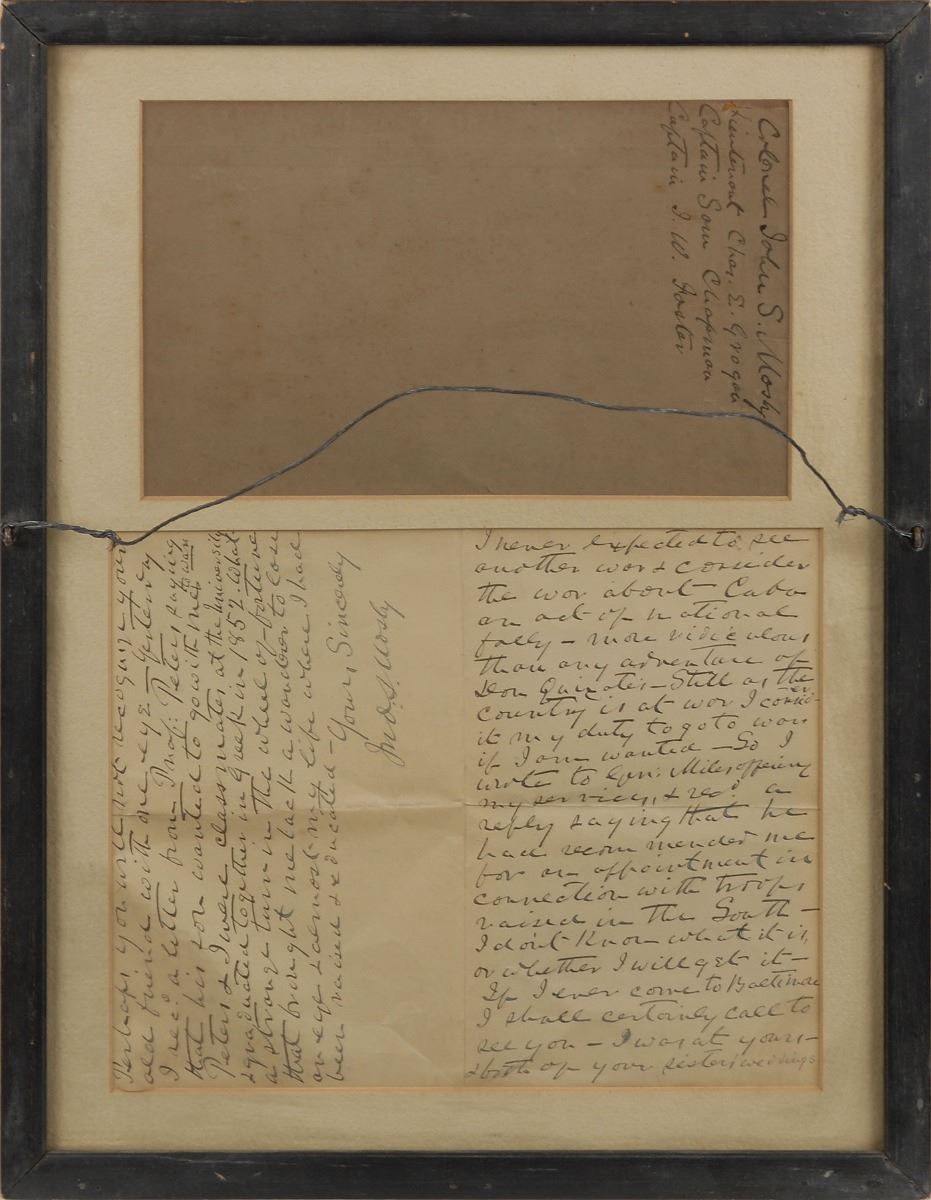 Colonel John S. Mosby
Lieutenant Chas. E. Grogan
Captain Sam Chapman
Captain J. W. Foster
I never expected to see
another war & consider
the war about Cuba
an act of national
folly – more ridiculous
than any adventure of
Don Quixote's – Still as the
country is at war I consider
it my duty to go to war
if I am wanted – So I
wrote to Gen. Miles offering
my services, & recd. a
reply saying that he
had recommended me
for an appointment in
connection with troops
raised in the South –
I don't know what it is,
or whether I will get it –
If I ever come to Baltimore
I shall certainly call to
see you – I was at yours –
& both of your sisters' weddings
Perhaps you will not recognize your
old friend with one eye – Yesterday
I recd a letter from Prof: Peters saying
that his son wanted to go with me to war
Peters & I were classmates at the University
& graduated together in Greek in 1852. What
a strange turn in the wheel of fortune
that brought me back a wanderer to lose
one eye & almost my life where I had
been raised & educated –
Yours Sincerely
Jno. S. Mosby